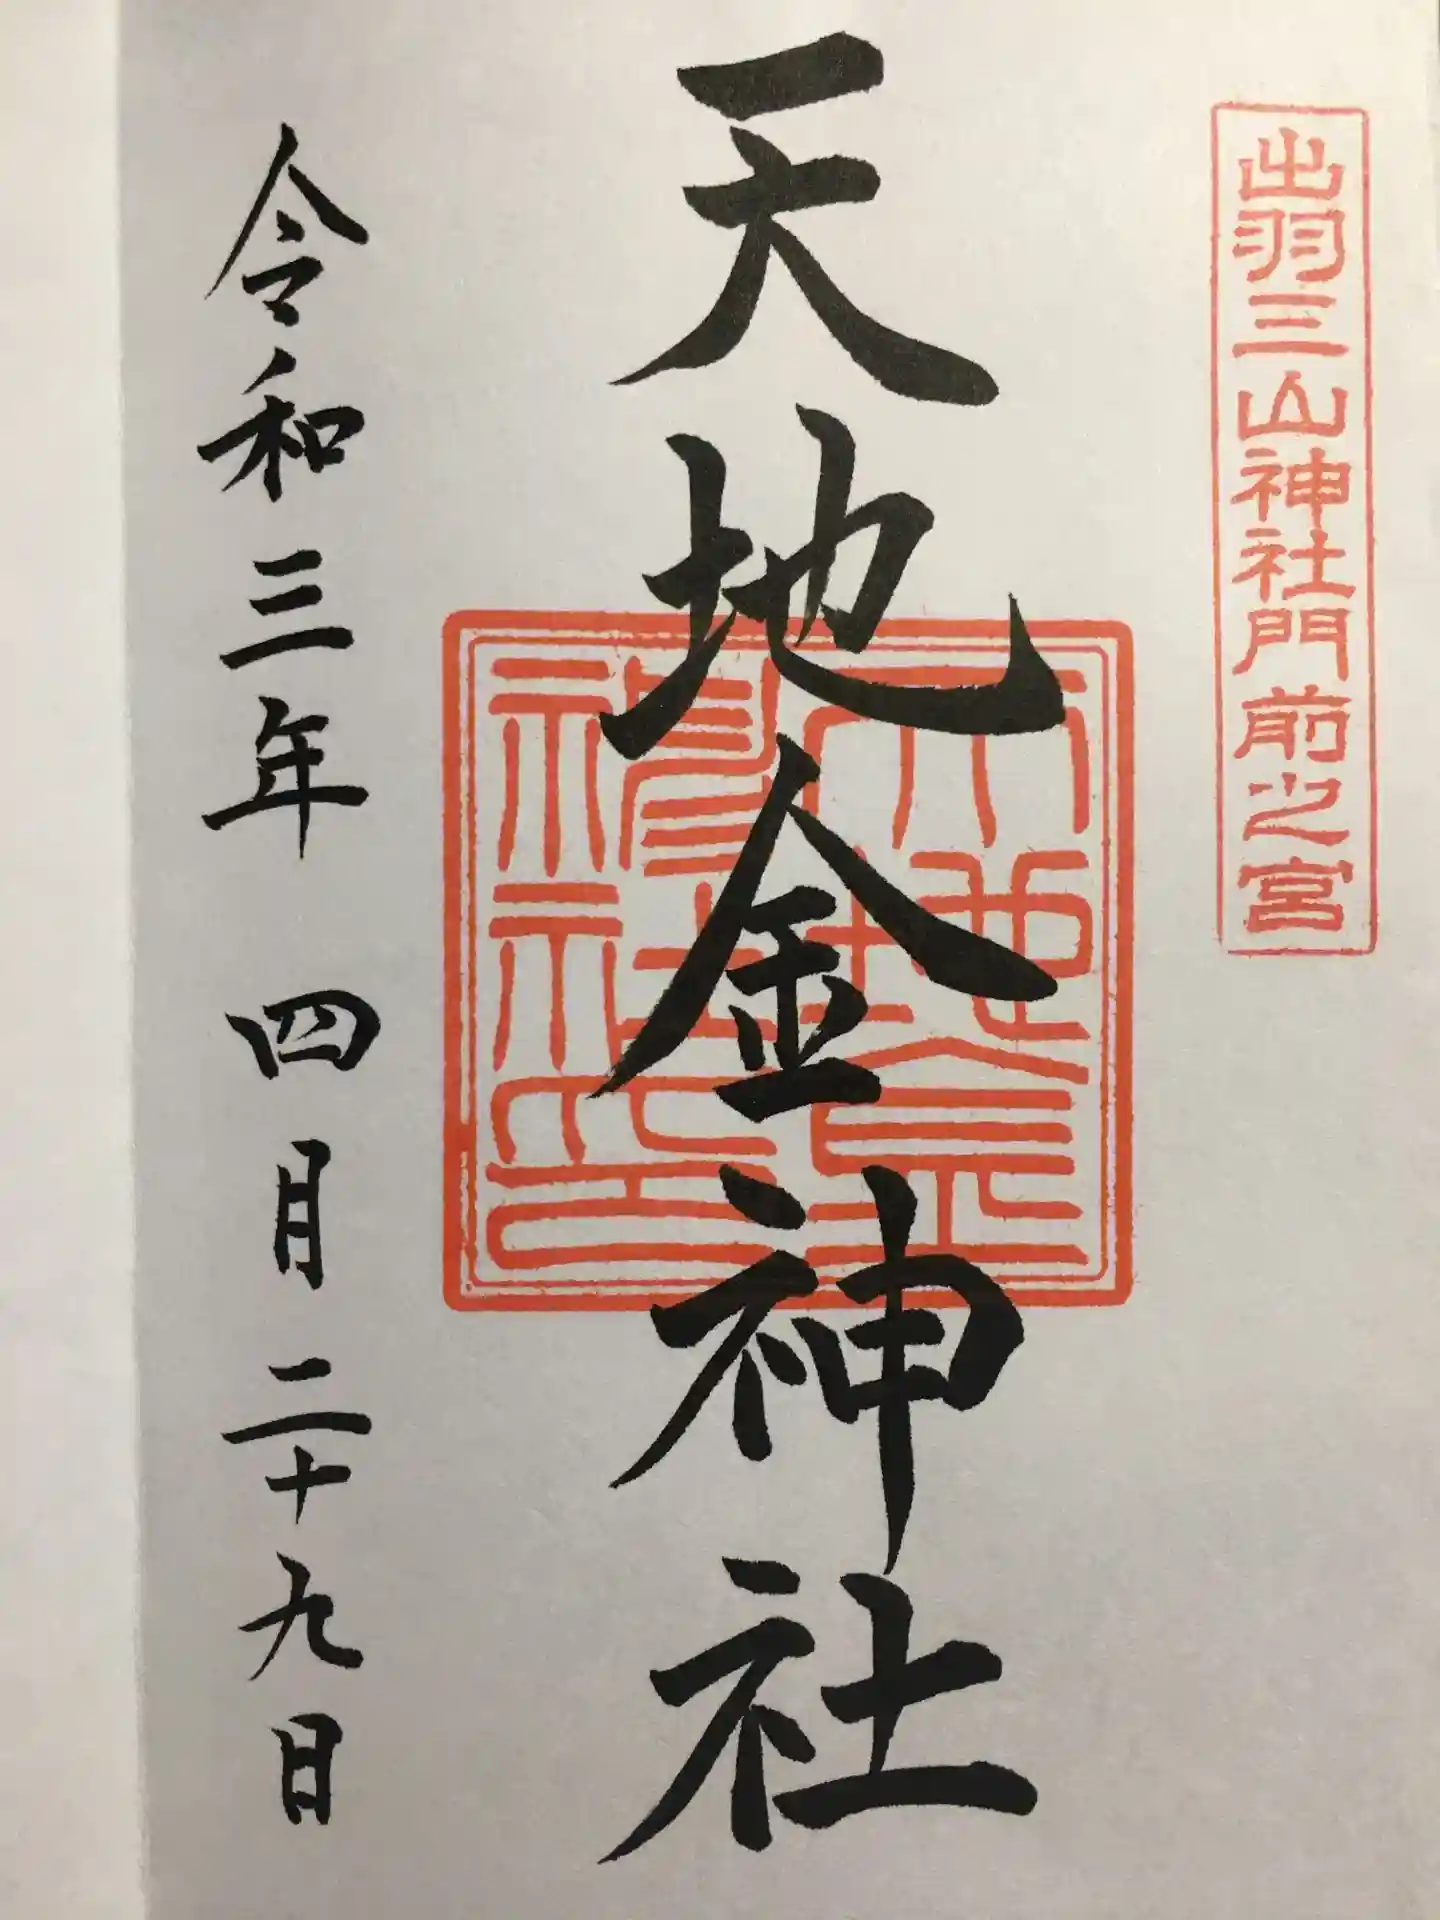 出羽三山神社門前之宮
天地金神社
天地金神社印
令和三年 四月二十九日